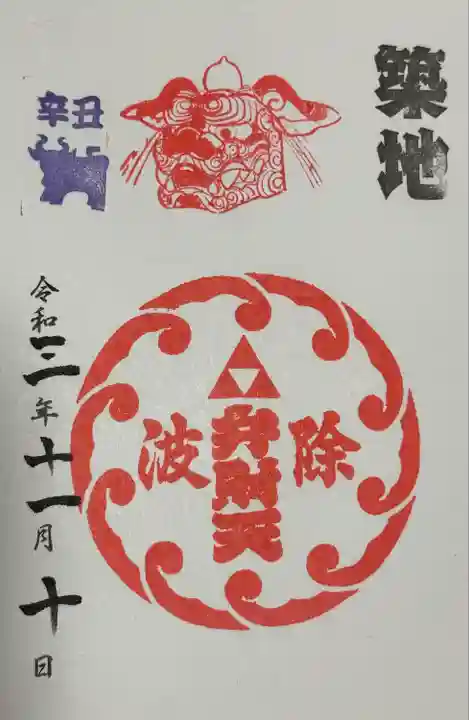 築地
除波
弁財天
辛丑
令和三年十一月十日